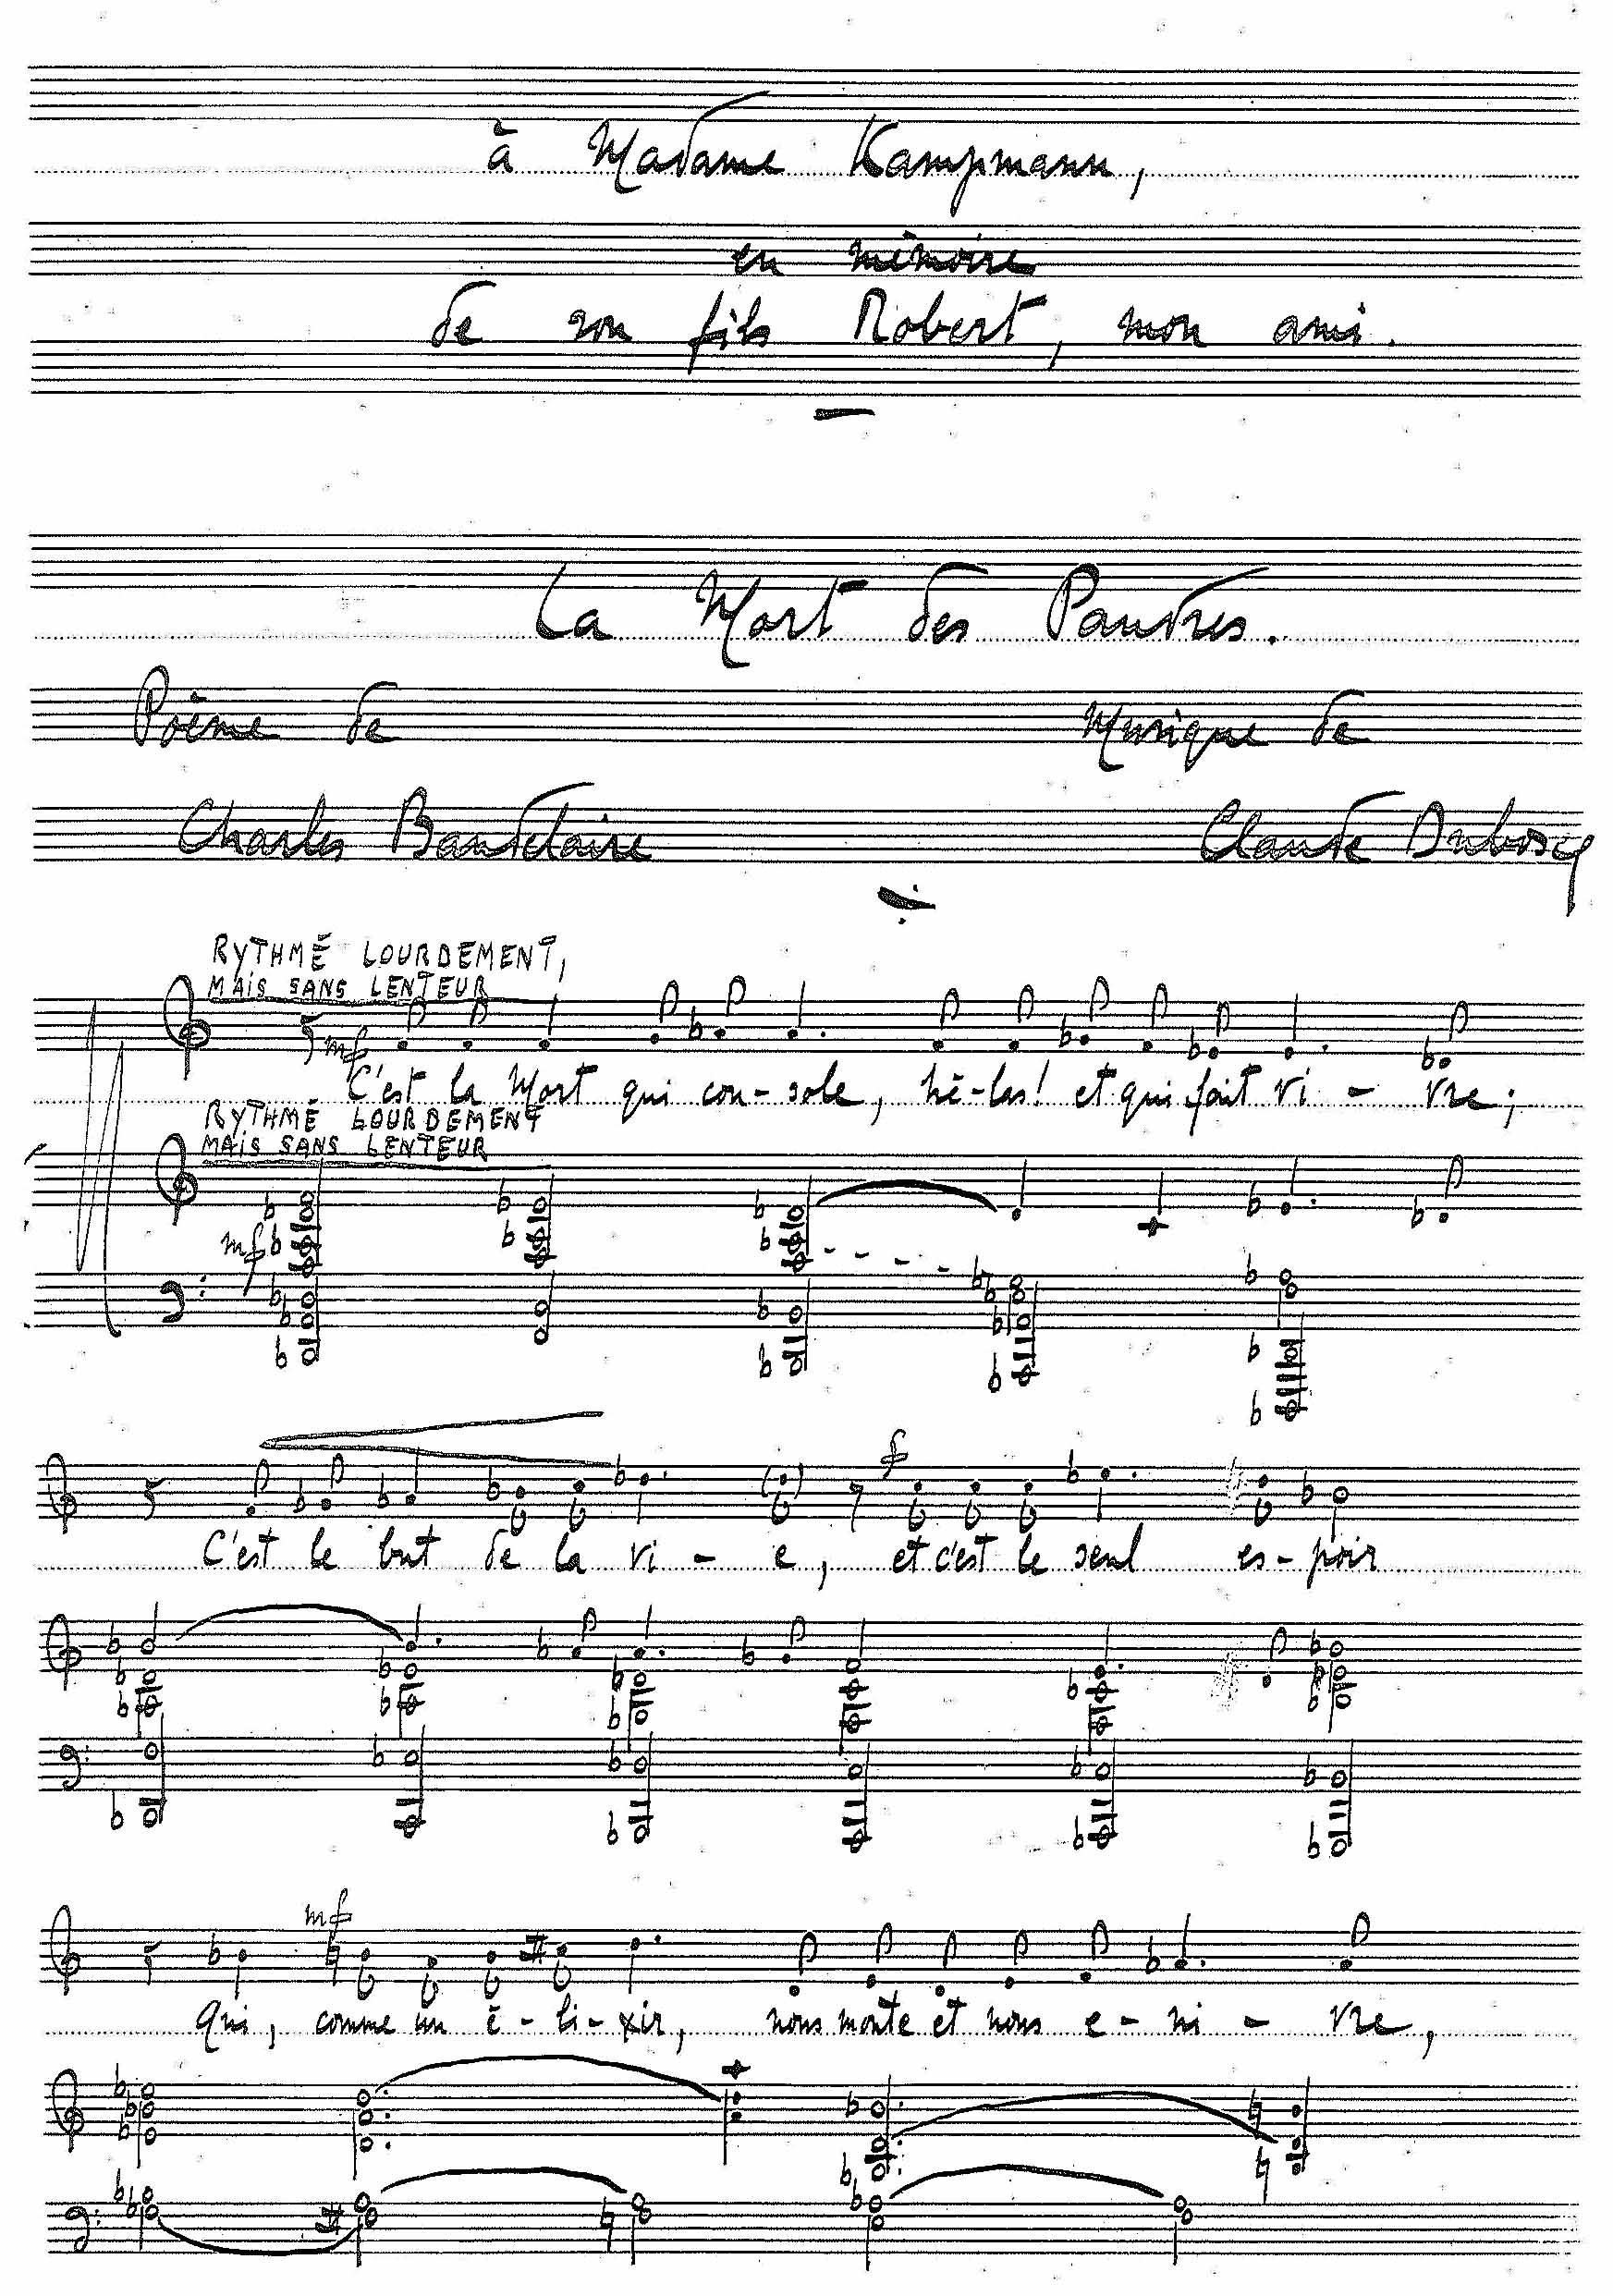 à Madame Kampmann,
en mémoire
de son fils Robert, mon ami.
La Mort des Pauvres.
Poème de
Musique de
Charles Baudelaire
Claude Duboscq
RYTHMÉ LOURDEMENT,
MAIS SANS LENTEUR
mf
C'est la Mort qui con-sole, hé-las! et qui fait vi - vre;
RYTHMÉ LOURDEMENT
MAIS SANS LENTEUR
mf
f
C'est le but de la vi - e, et c'est le seul es-poir
mf
Qui, comme un é-li-xir, nous monte et nous e-ni - vre,